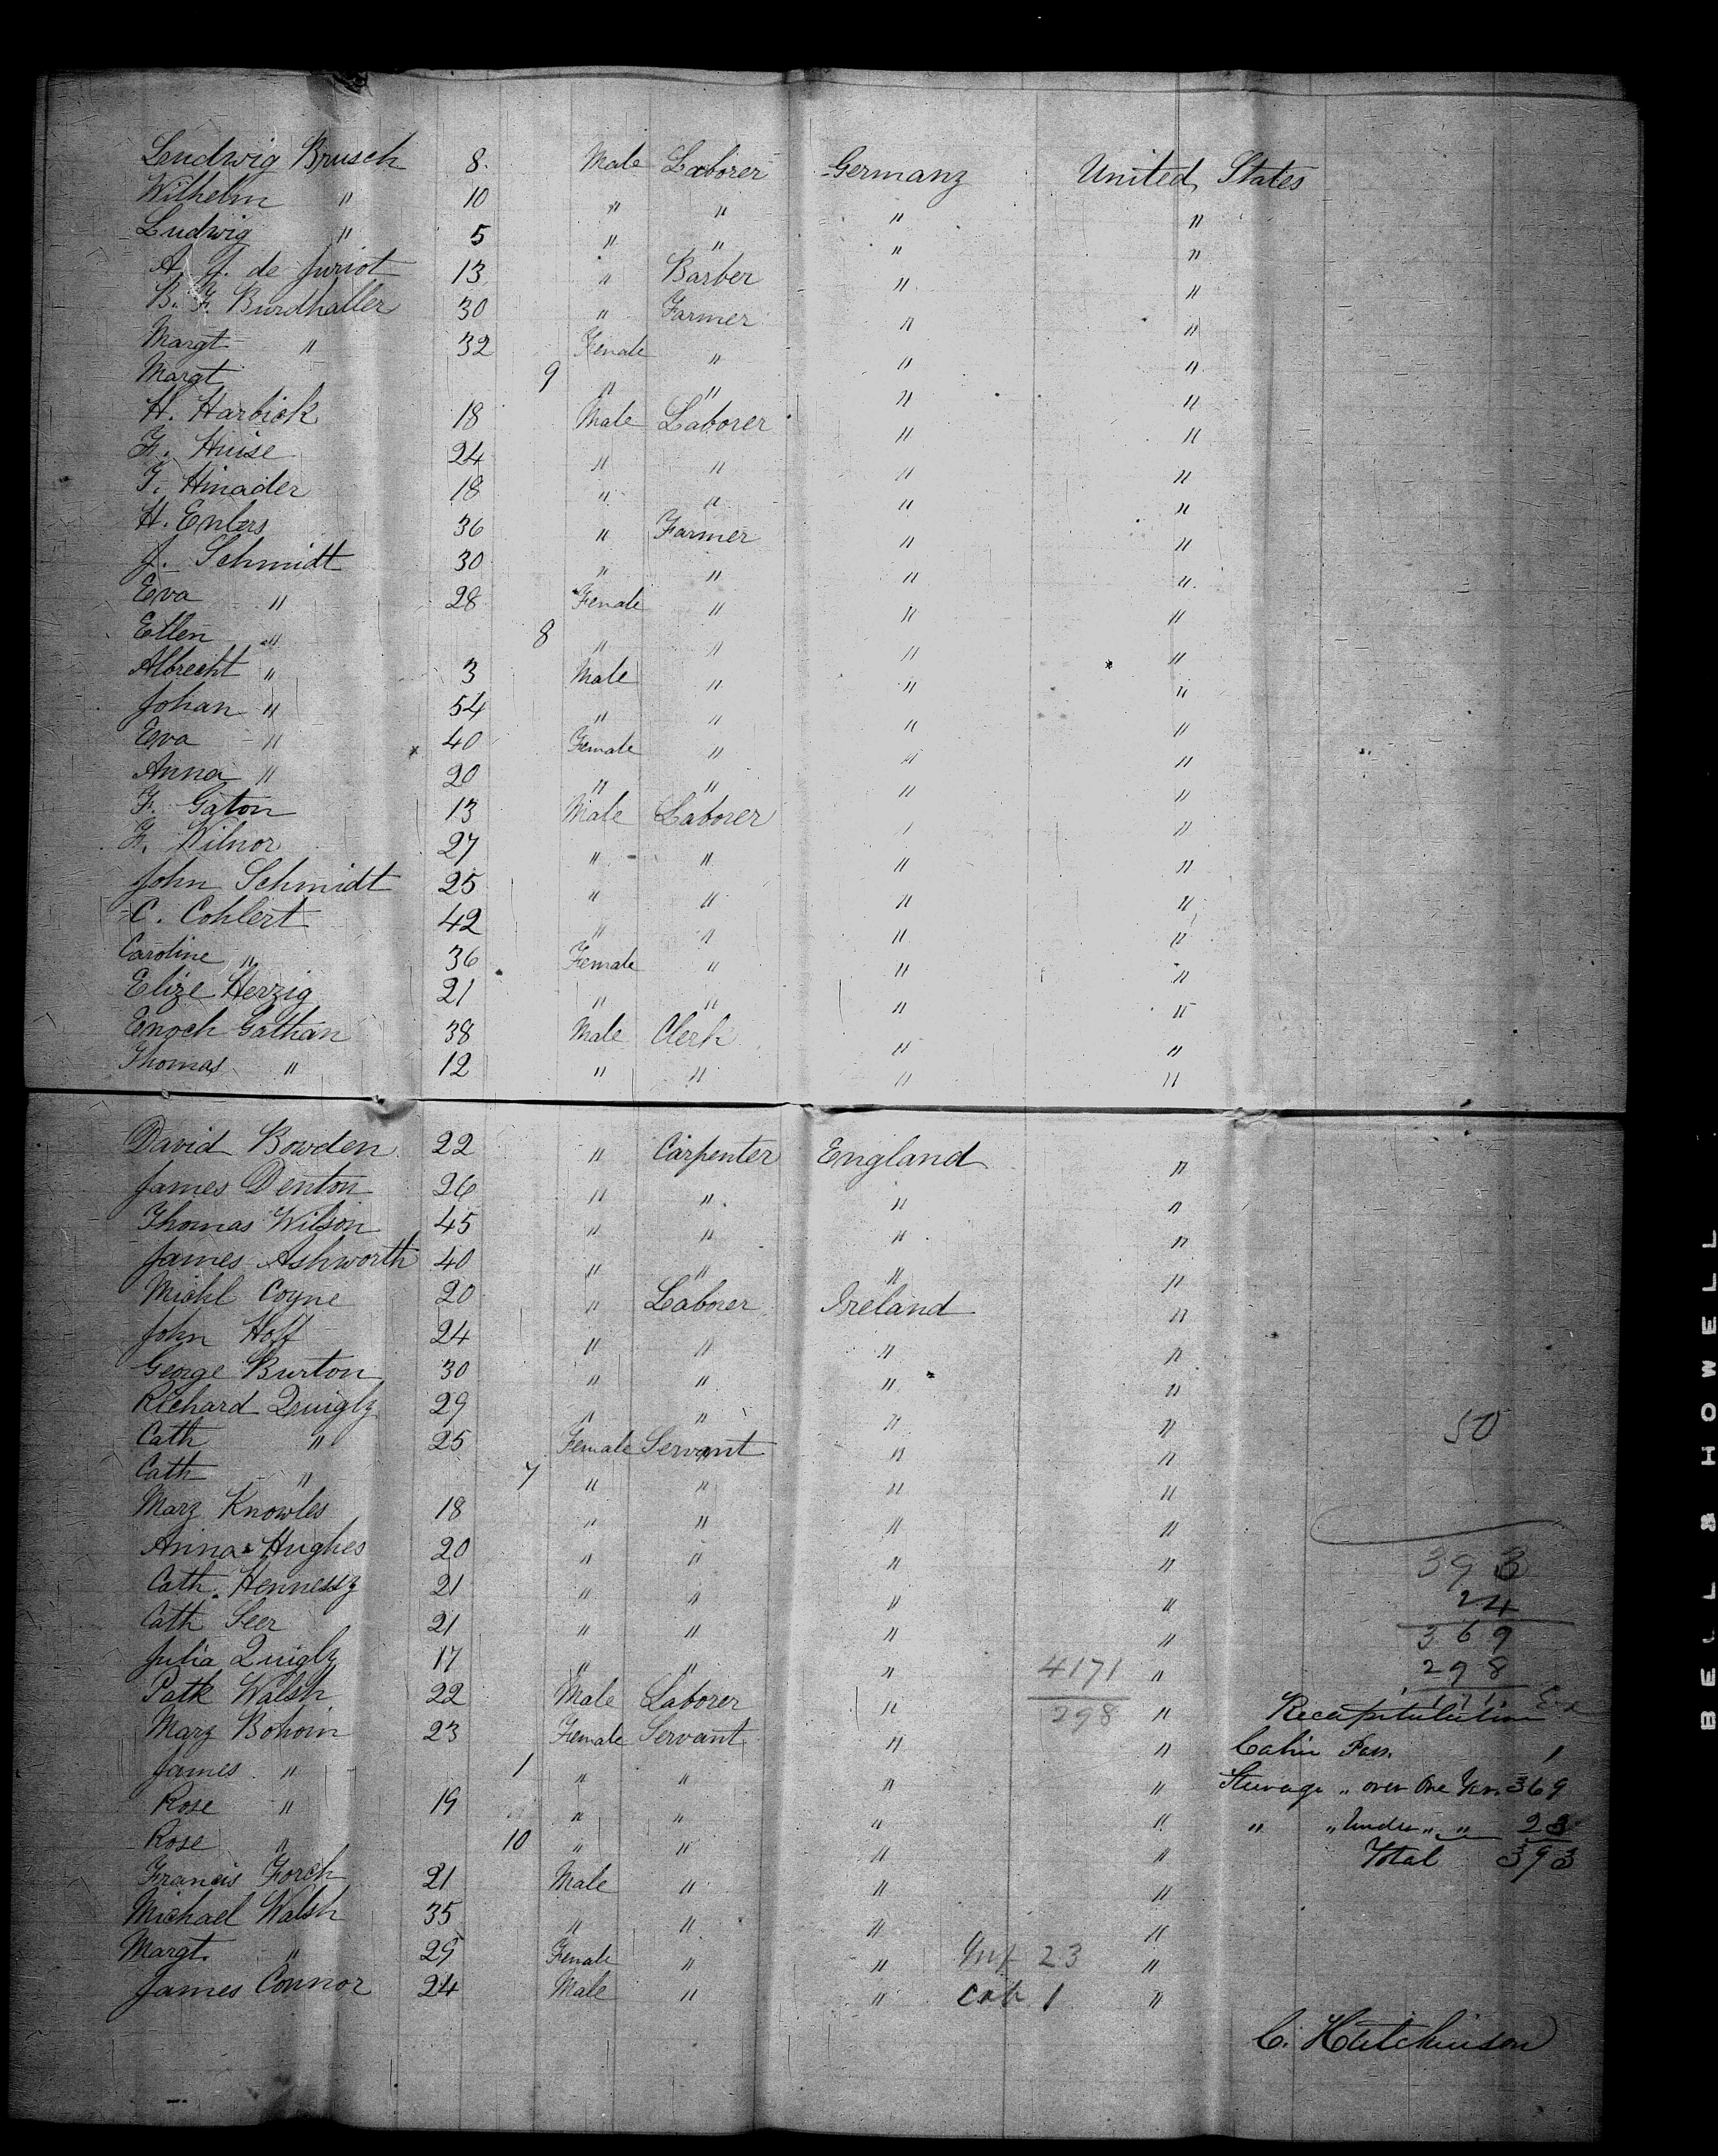 Ludwig Brusch 8 Male Laborer Germany United States
Wilhelm " 10 " " " "
Ludwig " 5 " " " "
A. J. de Juriot 13 " Barber " "
B. F. Burdhaller 30 " Farmer " "
Margt " 32 Female " " "
Margt 9 " " " "
H. Harbick 18 Male Laborer " "
F. Huise 24 " " " "
F. Hinader 18 " " " "
H. Enlers 36 " Farmer " "
J. Schmidt 30 " " " "
Eva " 28 Female " " "
Ellen " 8 " " " "
Albrecht " 3 Male " " "
Johan " 54 " " " "
Eva " 40 Female " " "
Anna " 20 " " " "
F. Gaton 13 Male Laborer " "
F. Wilnor 27 " " " "
John Schmidt 25 " " " "
C. Cohlert 42 " " " "
Caroline " 36 Female " " "
Elize Herzig 21 " " " "
Enoch Gathan 38 Male Clerk " "
Thomas " 12 " " " "
David Bowden 22 " Carpenter England "
James Denton 26 " " " "
Thomas Wilson 45 " " " "
James Ashworth 40 " " " "
Michl Coyne 20 " Laborer Ireland "
John Hoff 24 " " " "
George Burton 30 " " " "
Richard Quigly 29 " " " "
Cath " 25 Female Servant " "
Cath " 7 " " " "
Mary Knowles 18 " " " "
Anna Hughes 20 " " " "
Cath. Hennessy 21 " " " "
Cath Seer 21 " " " "
Julia Quigly 17 " " " "
Patk Walsh 22 Male Laborer " "
Mary Bohoin 23 Female Servant " "
James " 1 " " " "
Rose " 19 " " " "
Rose " 10 " " " "
Francis Forch 21 Male " " "
Michael Walsh 35 " " " "
Margt. " 29 Female " " "
James Connor 24 Male " " "
4171
298
Inf 23
Cab 1
50
393
24
369
298
Recapitulation
Cabin Pass. 1
Steerage " over One Yr. 369
" " Under " " 23
Total 393
C. Hutchinson
BELL & HOWELL